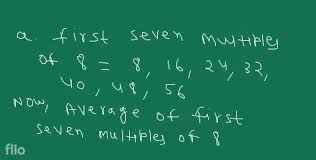 a. first seven multiples
of 8 = 8, 16, 24, 32,
40, 48, 56
Now, Average of first
seven multiples of 8
filo